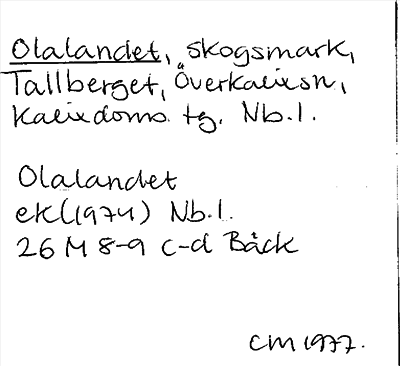 Olalandet, skogsmark,
Tallberget, Överkalixsn,
Kalixdoms. tg. Nb.l.
Olalandet
ek(1974) Nb.l.
26 M 8-9 c-d Bäck
CM 1977.